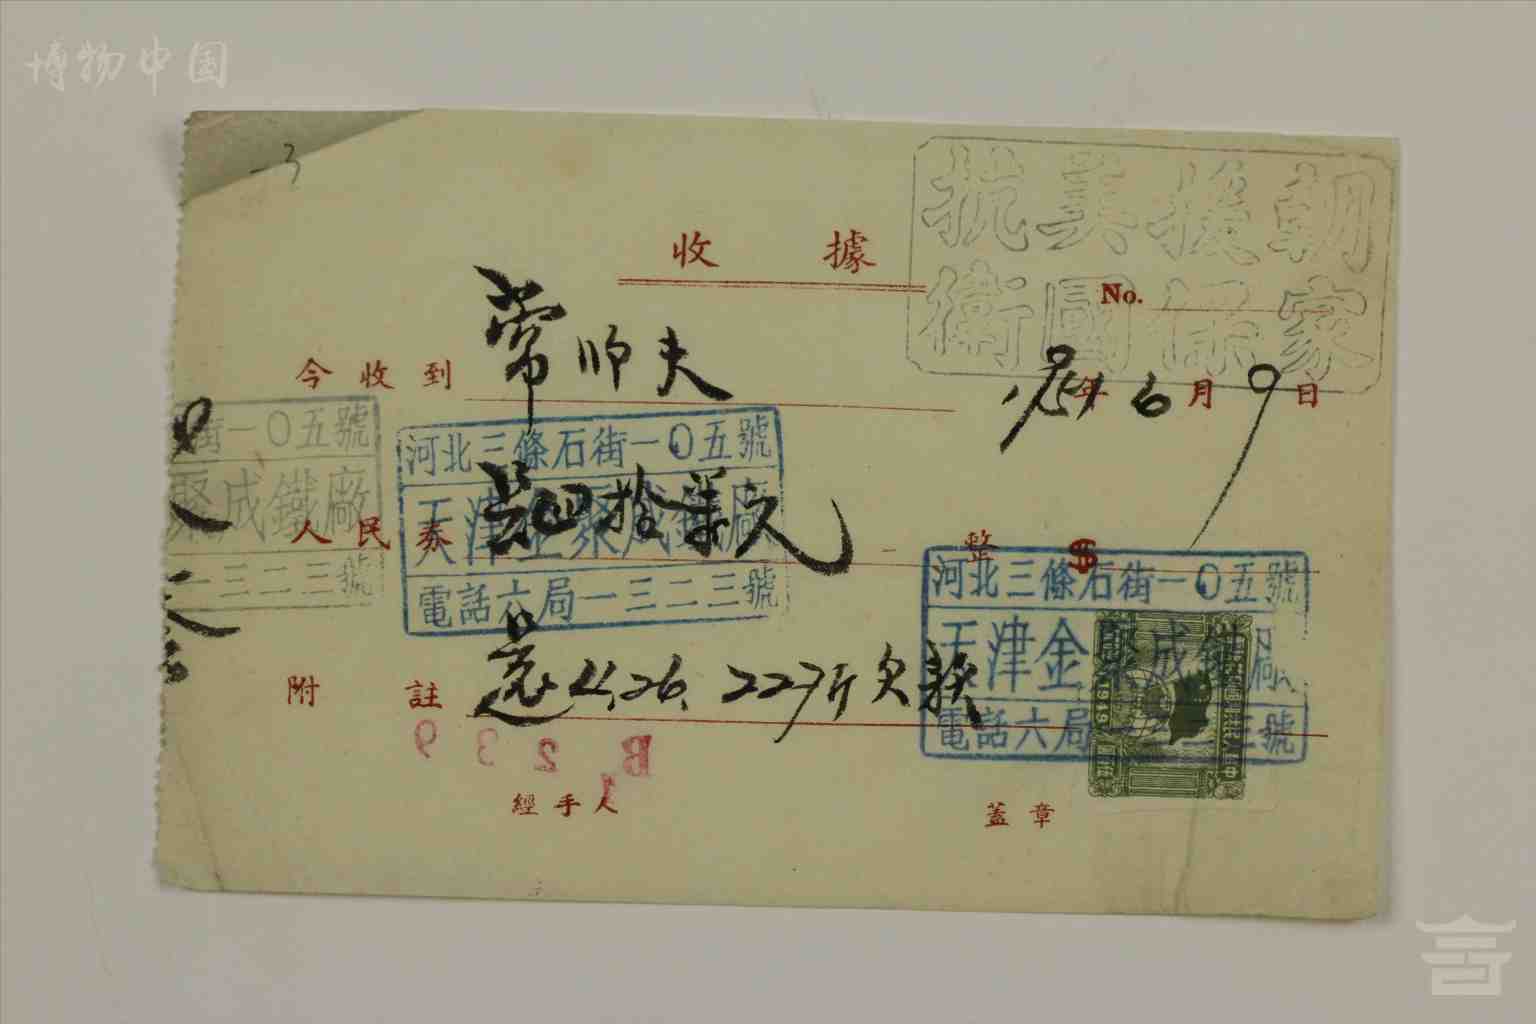 博物中国
3
抗美援朝
衛國保家
收據
No.
今收到 常師夫
年 6 月 9 日
街一〇五號
聚成鐵廠
一三二三號
河北三條石街一〇五號
天津金聚成鐵廠
電話六局一三二三號
人民券 四拾萬元 整 $
河北三條石街一〇五號
天津金聚成鐵廠
電話六局 三號
附註 還4.26. 227斤欠款
1949
B 2329
經手人
蓋章